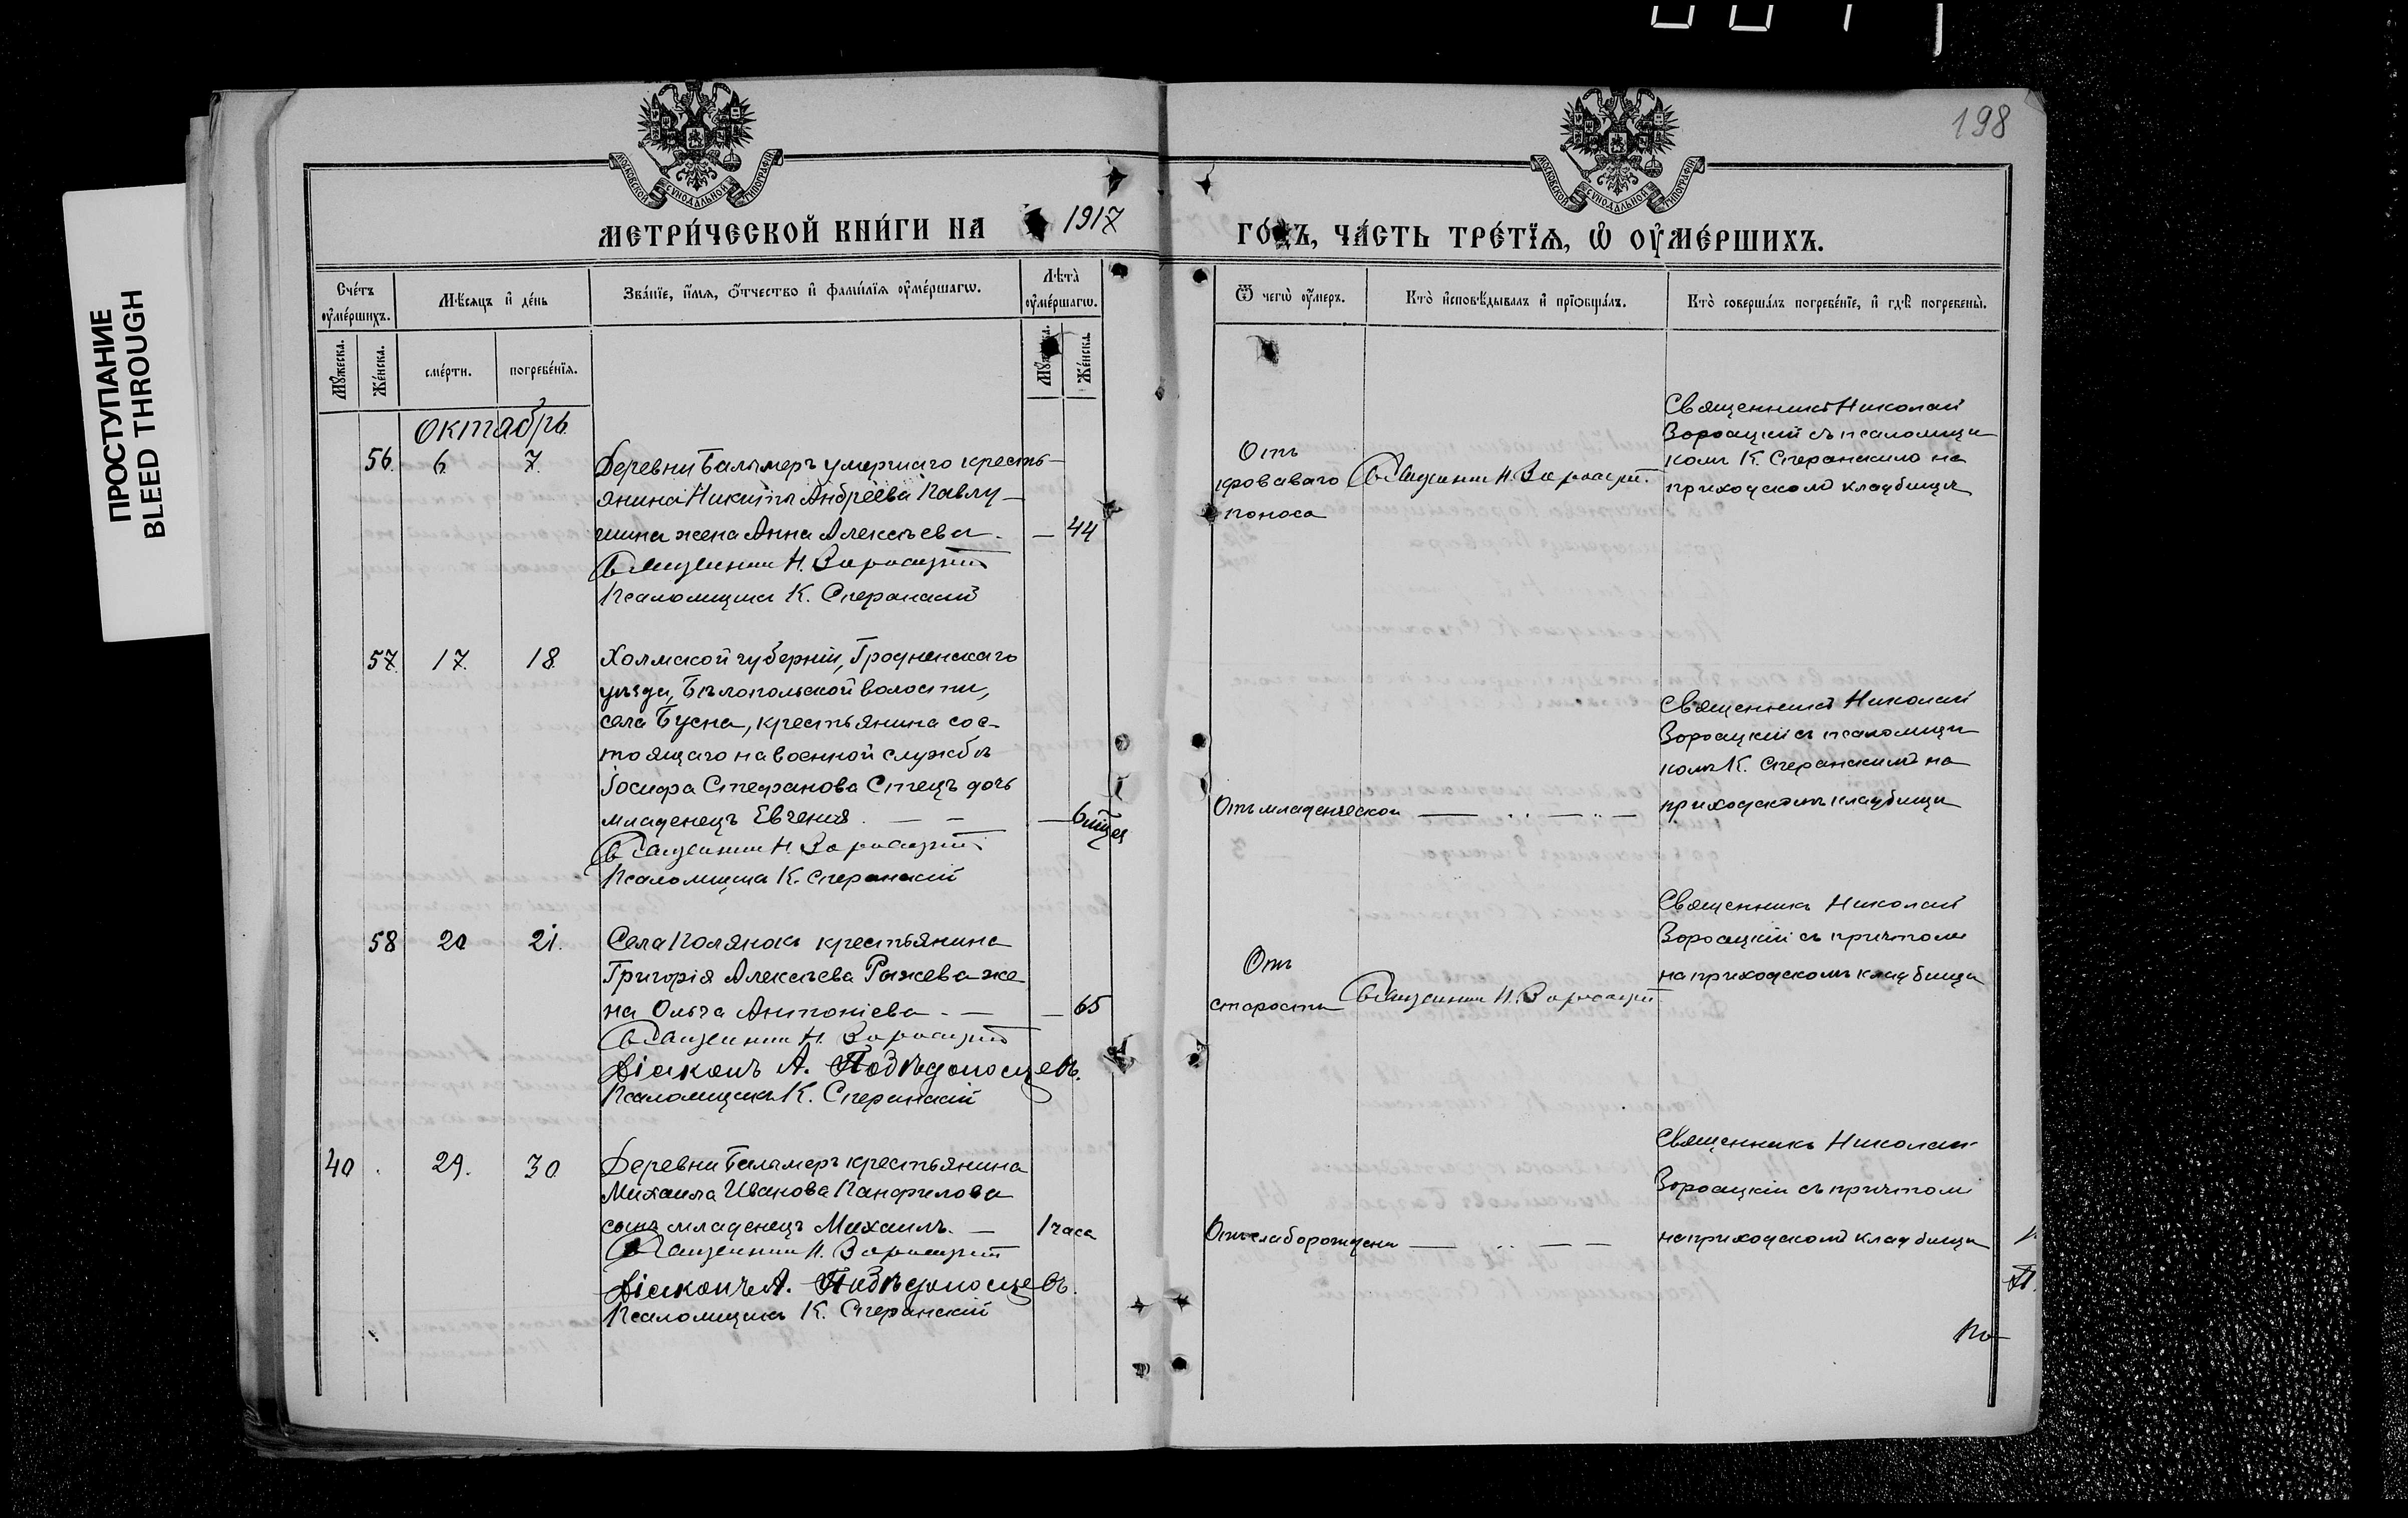 198
ПРОСТУПАНИЕ
BLEED THROUGH
МОСКОВСКОЙ СѴНОДАЛЬНОЙ ТИПОГРАФІИ
МОСКОВСКОЙ СѴНОДАЛЬНОЙ ТИПОГРАФІИ
МЕТРИ́ЧЕСКОЙ КНИ́ГИ НА 1917 ГО́ДЪ, ЧА́СТЬ ТРЕ́ТІѦ, Ѡ ОУМЕ́РШИХЪ.
Сче́тъ оуме́ршихъ.
Мѣ́сяцъ и де́нь
Зва́нїе, и́мя, о́тчество и фами́лїя оуме́ршагѡ.
Лѣта̀ оуме́ршагѡ.
Ѿ чегѡ̀ оу́меръ.
Кто̀ исповѣ́дывалъ и прїѡбща́лъ.
Кто̀ соверша́лъ погребе́нїе, и гдѣ̀ погребены̀.
Му́жеска.
Же́нска.
сме́рти.
погребе́нїя.
Же́нска.
Октябрь
56. 6. 7.
Деревни Балымеръ умершаго кресть-
янина Никиты Андреева Павлу-
шина жена Анна Алексѣева — 44
Священникъ Н. Вороацкій
Псаломщикъ К. Сперанскій
Отъ
кроваваго
поноса
Священникъ Н. Вороацкій.
Священникъ Николай
Вороацкій съ псаломщи
комъ К. Сперанскимъ на
приходскомъ кладбищѣ
57. 17. 18.
Холмской губерніи, Гродненскаго
уѣзда, Бѣлопольской волости,
села Бусна, крестьянина сос-
тоящаго на военной службѣ
Іосифа Стефанова Стецъ дочь
младенецъ Евгенія — 6 мѣс
Священникъ Н. Вороацкій
Псаломщикъ К. Сперанскій
Отъ младенческой
Священникъ Николай
Вороацкій съ псаломщи
комъ К. Сперанскимъ на
приходскомъ кладбищѣ
58 20 21.
Села Полянокъ крестьянина
Григорія Алексѣева Рыжева же
на Ольга Антоніева — 65
Священникъ Н. Вороацкій
Діаконъ А. Побѣдоносцевъ.
Псаломщикъ К. Сперанскій
Отъ
старости
Священникъ Н. Вороацкій
Священникъ Николай
Вороацкій съ причтомъ
на приходскомъ кладбищѣ
40 29. 30
Деревни Балымеръ крестьянина
Михаила Иванова Панфилова
сынъ младенецъ Михаилъ. — 1 часа
Священникъ Н. Вороацкій
Діаконъ А. Побѣдоносцевъ.
Псаломщикъ К. Сперанскій
Отъ слаборожден
Священникъ Николай
Вороацкій съ причтомъ
на приходскомъ кладбищѣ